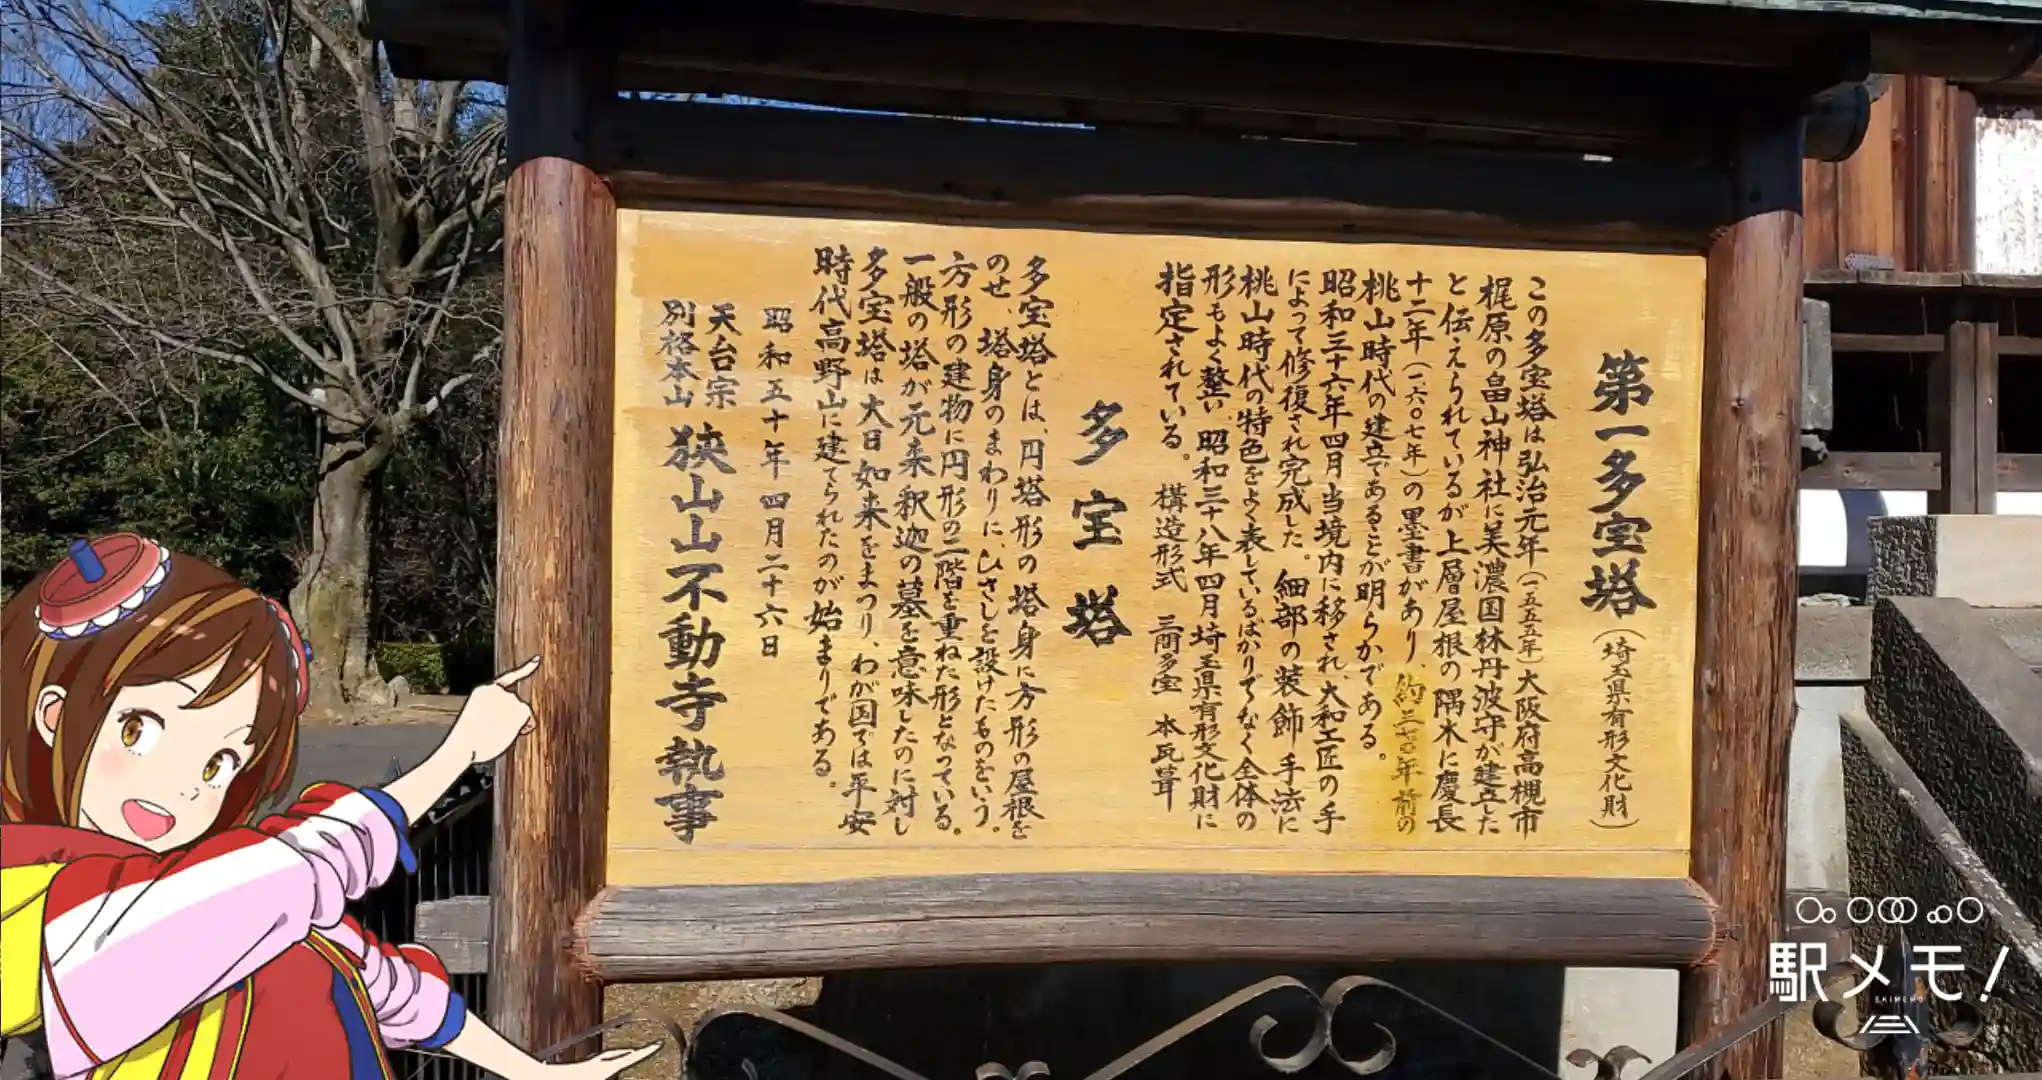 第一多宝塔(埼玉県有形文化財)
この多宝塔は弘治元年(一五五五年)大阪府高槻市
梶原の畠山神社に美濃国林丹波守が建立した
と伝えられているが上層屋根の隅木に慶長
十二年(一六〇七年)の墨書があり、約三七〇年前の
桃山時代の建立であることが明らかである。
昭和三十六年四月当境内に移され、大和工匠の手
によって修復され完成した。細部の装飾手法に
桃山時代の特色をよく表しているばかりでなく全体の
形もよく整い昭和三十八年四月埼玉県有形文化財に
指定されている。構造形式 三間多宝 本瓦葺
多宝塔
多宝塔とは、円塔形の塔身に方形の屋根を
のせ、塔身のまわりに、ひさしを設けたものをいう。
方形の建物に円形の二階を重ねた形となっている。
一般の塔が元来釈迦の墓を意味したのに対し
多宝塔は大日如来をまつり、わが国では平安
時代高野山に建てられたのが始まりである。
昭和五十年四月二十六日
天台宗
別格本山
狭山山不動寺執事
駅メモ!
EKIMEMO